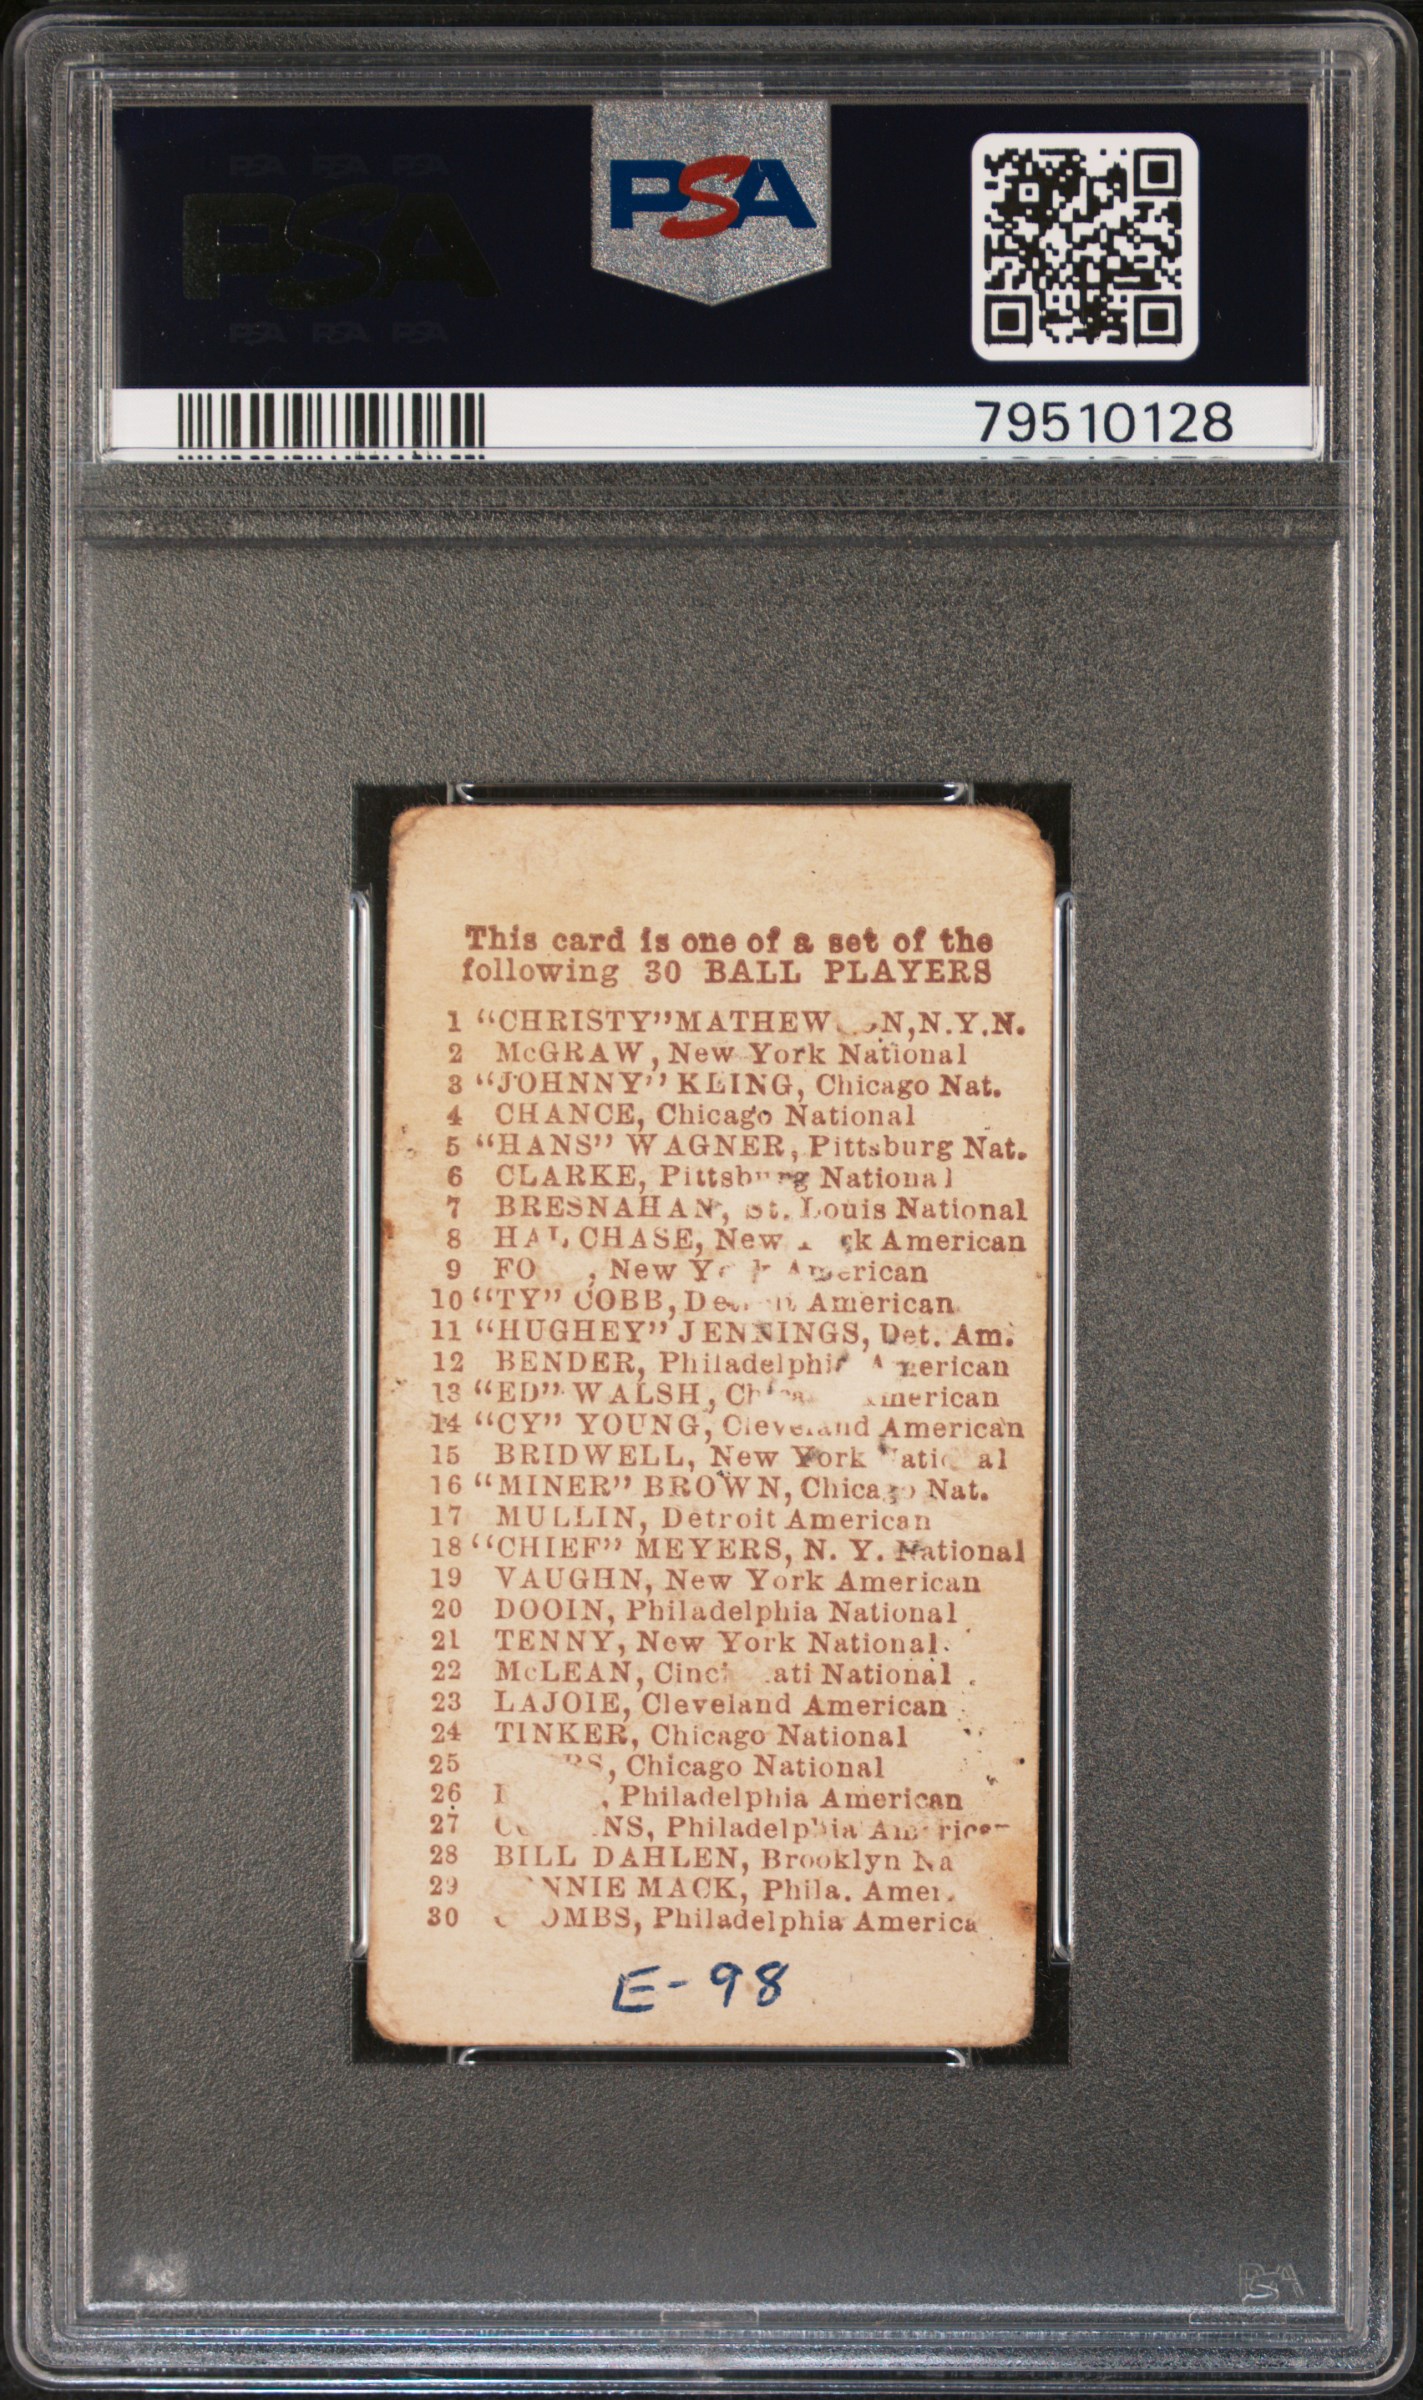 PSA
79510128
This card is one of a set of the
following 30 BALL PLAYERS
1 "CHRISTY" N,N.Y.N.
2 McGRAW, New York National
3 "JOHNNY" KLING, Chicago Nat.
4 CHANCE, Chicago National
5 "HANS" WAGNER, Pittsburg Nat.
6 CLARKE, Pittsburg National
7 BRESNAHAN, St. Louis National
8 HAL CHASE, New American
9 , New American
10 "TY" COBB, American
11 "HUGHEY" JENNINGS, Det. Am.
12 BENDER, Philadelphia American
13 "ED" WALSH, American
14 "CY" YOUNG, Cleveland American
15 BRIDWELL, New York
16 "MINER" BROWN, Chicago Nat.
17 MULLIN, Detroit American
18 "CHIEF" MEYERS, N. Y. National
19 VAUGHN, New York American
20 DOOIN, Philadelphia National
21 TENNY, New York National.
22 McLEAN, National
23 LAJOIE, Cleveland American
24 TINKER, Chicago National
25 , Chicago National
26 , Philadelphia American
27 NS, Philadelphia American
28 BILL DAHLEN, Brooklyn Na
29 NNIE MACK, Phila. Amer.
30 OMBS, Philadelphia America
E-98
PSA